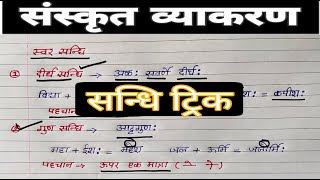 संस्कृत व्याकरण
स्वर सन्धि
① दीर्घ सन्धि → अकः सवर्णे दीर्घः
विद्या + = कपीशः
पहचान
सन्धि ट्रिक
② गुण सन्धि → आद्गुणः
महा + ईशः = महेशः जल + ऊर्मि = जलोर्मिः
पहचान → ऊपर एक मात्रा